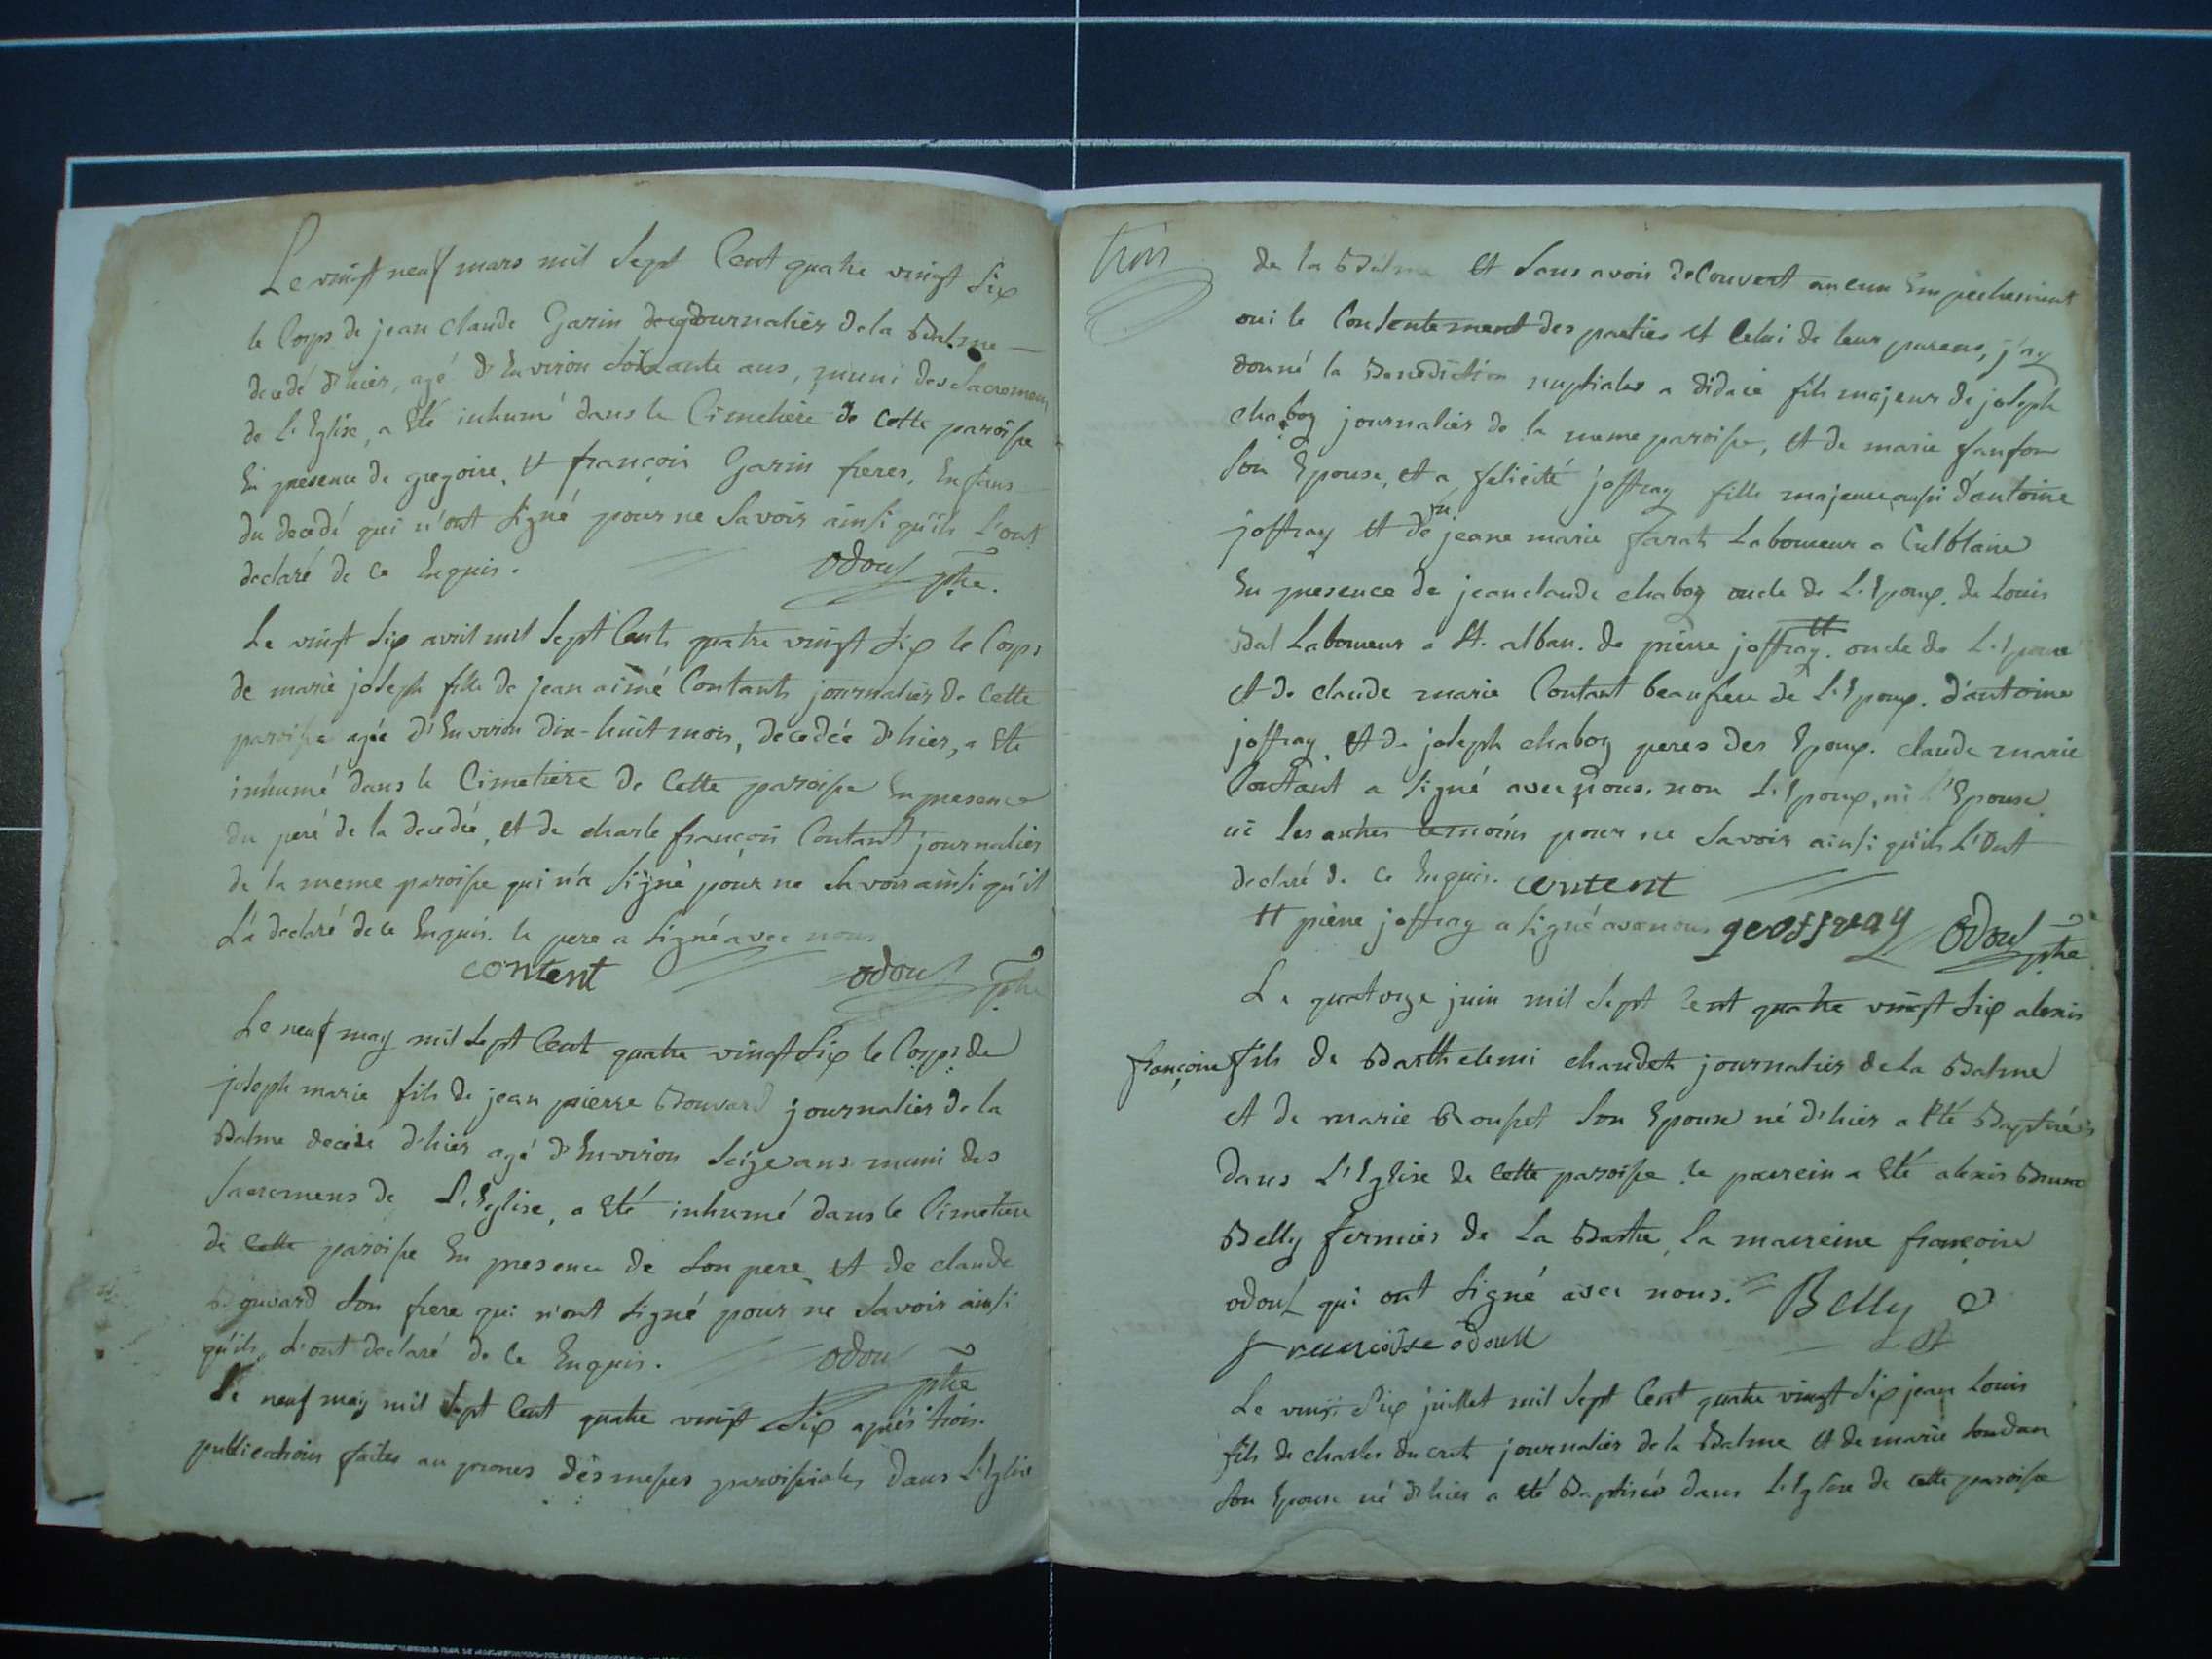 Le vingt neuf mars mil sept Cent quatre vingt six
le Corps de jean claude Garin journalier de la Balme
decedé d'hier, agé d'Environ soixante ans, muni des Sacremens
de L'Eglise, a Eté inhumé dans le Cimetière de Cette paroisse
En presence de gregoire, et françois Garin freres, Enfans
du decedé qui n'ont signé pour ne Savoir ainsi qu'ils L'ont
declaré de ce Enquis. odoul ptre.
Le vingt six avril mil Sept Cent quatre vingt six le Corps
de marie joseph fille de jean aimé Contant journalier de Cette
paroisse agée d'Environ dix-huit mois, decedée d'hier, a Eté
inhumé dans le Cimetière de Cette paroisse En presence
du peré de la decedée, et de charle françois Contant journalier
de la meme paroisse qui n'a signé pour ne Savoir ainsi qu'il
L'a declaré de ce Enquis. le pere a signé avec nous.
content odoul ptre
Le neuf may mil sept Cent quatre vingt six le Corps de
joseph marie fils de jean pierre Bouvard journalier de la
Balme decédé d'hier agé d'Environ seize ans muni des
Sacremens de L'Eglise, a Eté inhumé dans le Cimetiere
de Cette paroisse En presence de son pere, et de claude
Bouvard son frere qui n'ont signé pour ne Savoir ainsi
qu'ils L'ont declaré de ce Enquis. odoul ptre
Le neuf may mil sept Cent quatre vingt six après trois
publications faites au prones des messes paroissiales dans L'Eglise
trois
de la Balme et sans avoir decouvert aucun Empêchement
oui le Consentement des parties et Celui de leur parens, j'ay
donné la Benediction nuptiale a didace fils majeur de joseph
chaboy journalier de la meme paroisse, et de marie
son Epouse, et a felicité joffray fille majeure aussi d'antoine
joffray et de jeane marie Laboureur a Culblaine
En presence de jean claude chaboy oncle de L'Epoux. de Louis
Bal Laboureur a St. alban. de pierre joffray. oncle de L'Epouse
et de claude marie Contant beaufrere de L'Epoux. d'antoine
joffray, et de joseph chaboy peres des Epoux. claude marie
Contant a signé avec nous. non L'Epoux, ni L'Epouse
ni les autres temoins pour ne Savoir ainsi qu'ils L'ont
declaré de ce Enquis. content
et pierre joffray a signé avec nous geoffray odoul ptre
Le quatorze juin mil sept Cent quatre vingt six alexis
françois fils de Barthelemi chaudet journalier de la Balme
et de marie Rousset son Epouse né d'hier a Eté Baptisé
dans L'Eglise de Cette paroisse. le parrein a Eté alexis Bruno
Belly fermier de La Bastie, la marreine françoise
odoul qui ont signé avec nous. Belly
françoise odoull
Le vingt six juillet mil sept Cent quatre vingt six jean Louis
fils de charles ducret journalier de la Balme et de marie
son Epouse né d'hier a eté Baptisé dans L'Eglise de cette paroisse